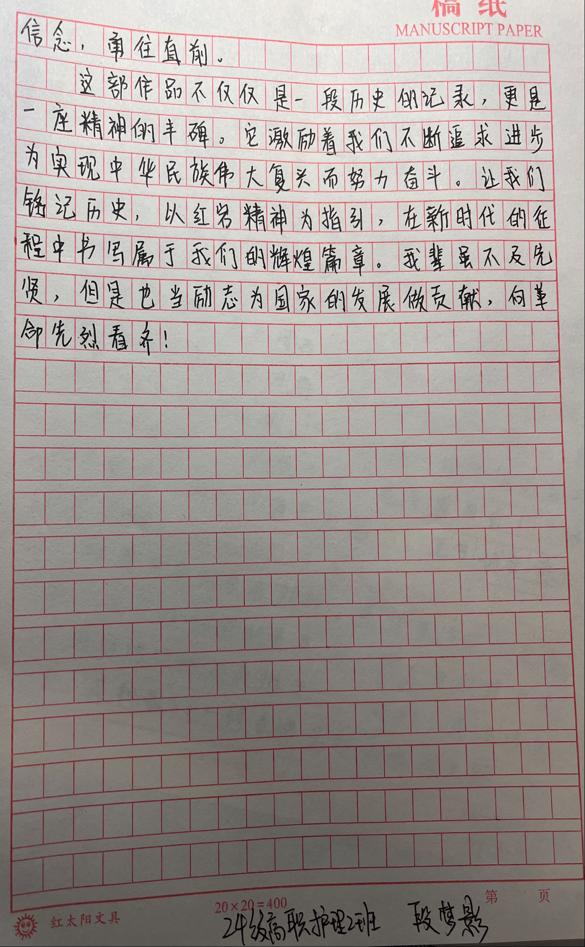 稿纸
MANUSCRIPT PAPER
信念，勇往直前。
这部作品不仅仅是一段历史的记录，更是
一座精神的丰碑。它激励着我们不断追求进步
为实现中华民族伟大复兴而努力奋斗。让我们
铭记历史，以红岩精神为指引，在新时代的征
程中书写属于我们的辉煌篇章。我辈虽不及先
贤，但是也当励志为国家的发展做贡献，向革
命先烈看齐！
红太阳文具
20×20=400
第 页
24级高职护理2班 段梦影